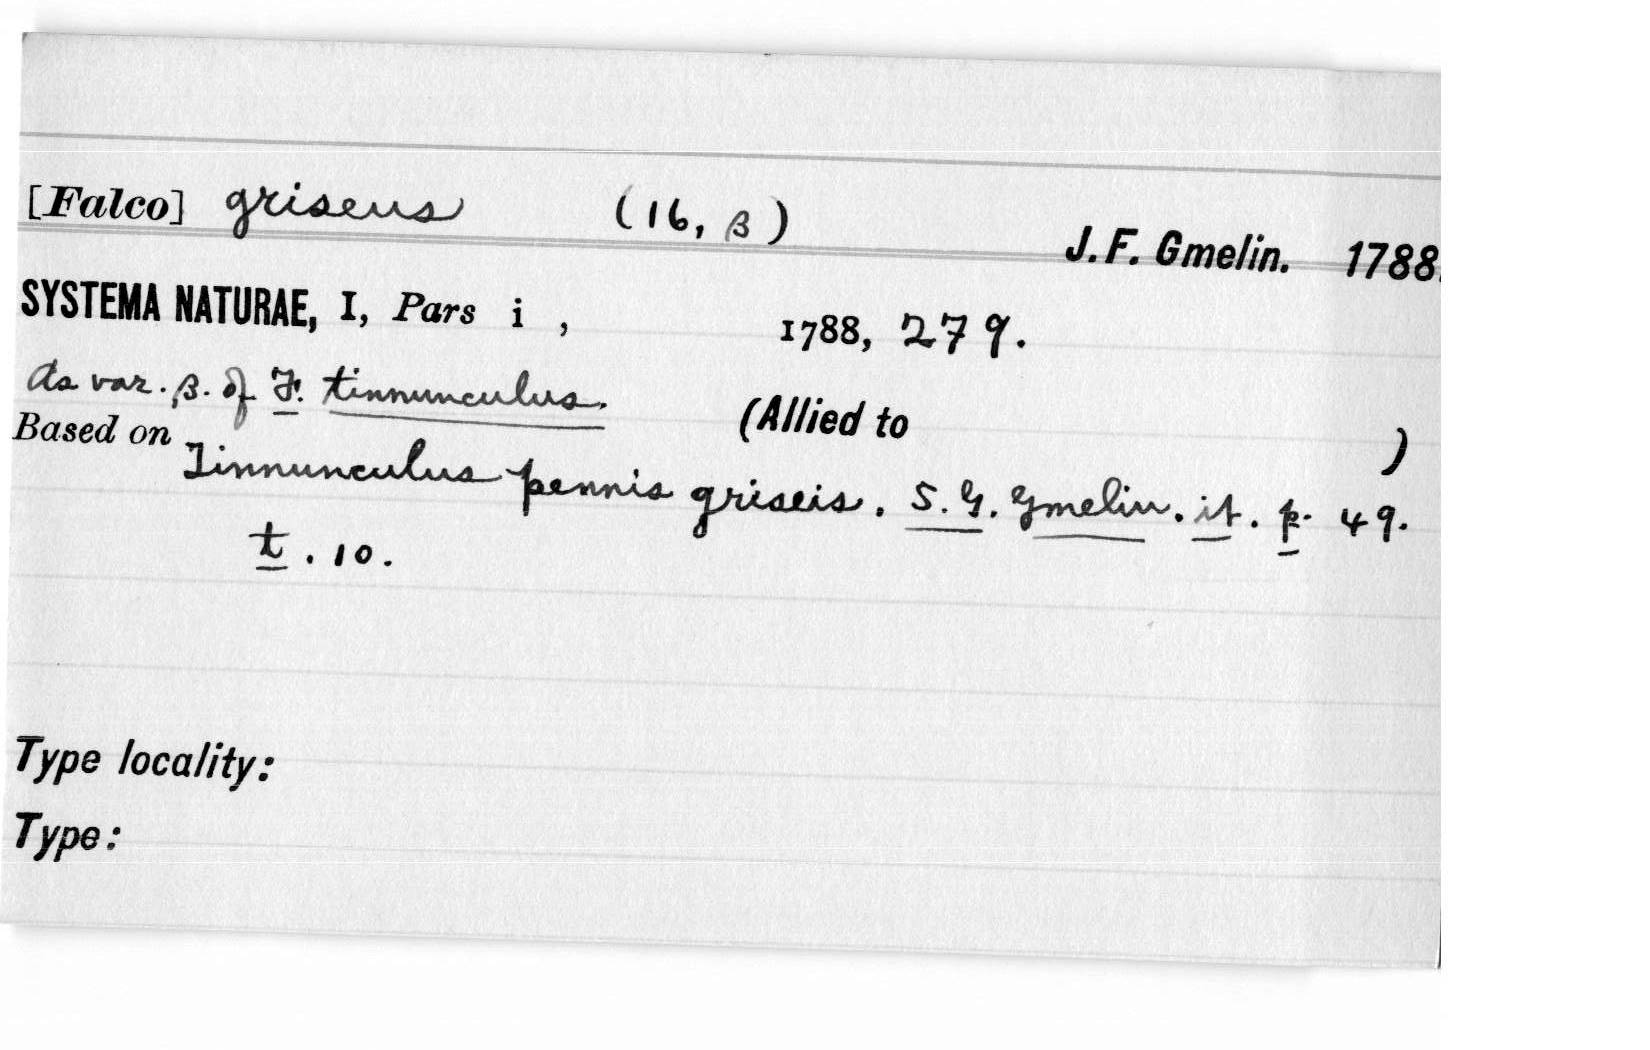 [Falco] griseus (16, β) J. F. Gmelin. 1788.
SYSTEMA NATURAE, I, Pars i , 1788, 279.
As var. β. of F. tinnunculus. (Allied to )
Based on
Tinnunculus pennis griseis. S. G. Gmelin. it. p. 49.
t. 10.
Type locality:
Type: